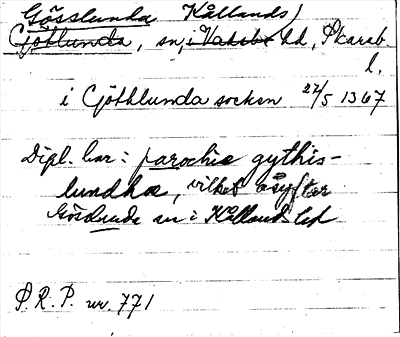 Gösslunda Kållands)
Götlunda, sn, i Vadsbo hd, Skarab.
l.
i Göthlunda socken 22/5 1367
Dipl. har: parochie gythis-
lundha, vilket åsyftar
Gösslunda sn i Kållands hd
S.R.P. nr. 771